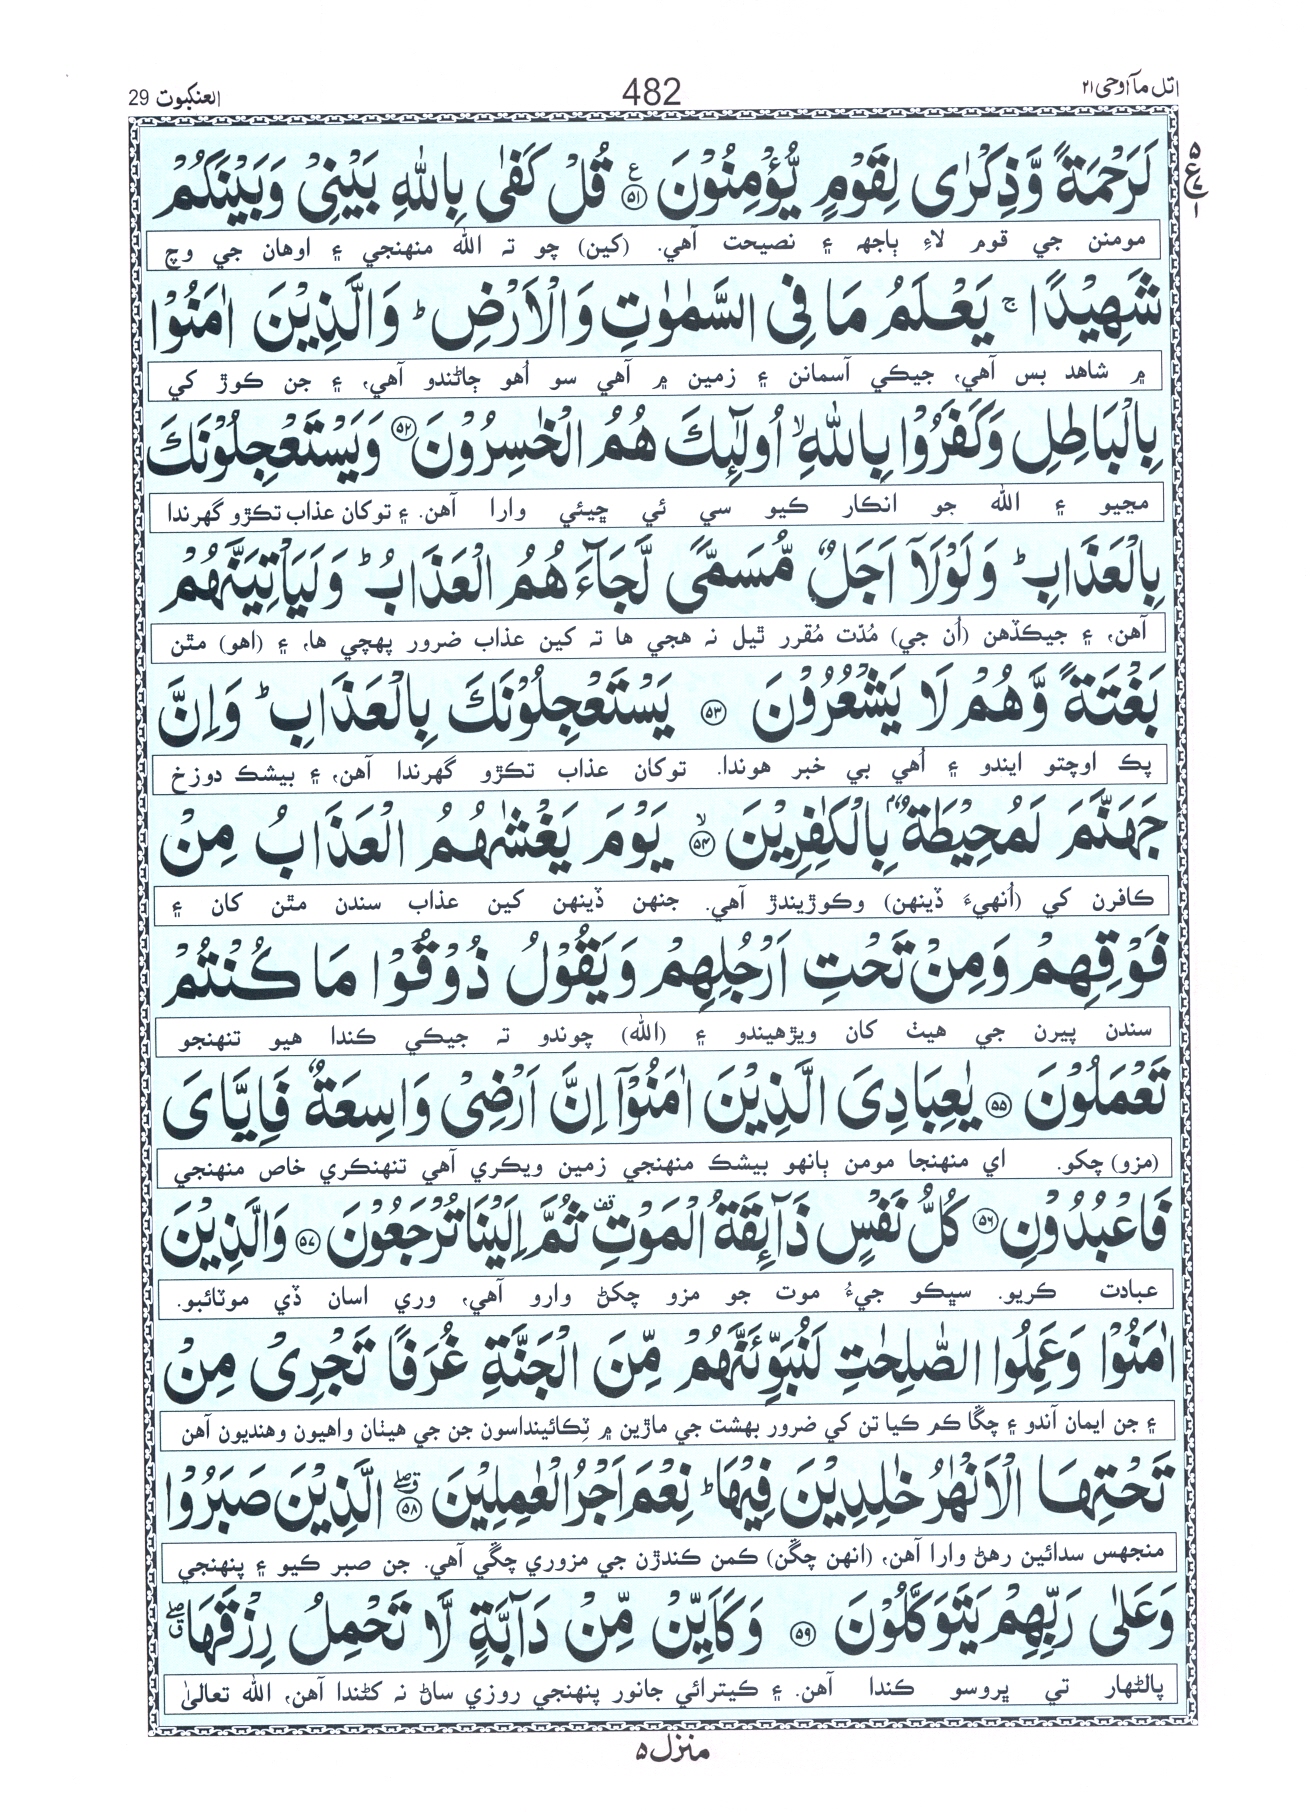 اتل مآ اوحی ۲۱
482
العنكبوت 29
لَرَحْمَةً وَّذِكْرٰى لِقَوْمٍ يُّؤْمِنُوْنَ ۵۱ ع قُلْ كَفٰى بِاللّٰهِ بَيْنِيْ وَبَيْنَكُمْ
ع ۵ ۱
مومنن جي قوم لاءِ ٻاجهہ ۽ نصيحت آهي. (کين) چو تہ الله منهنجي ۽ اوهان جي وچ
شَهِيْدًا ۚ يَعْلَمُ مَا فِي السَّمٰوٰتِ وَالْاَرْضِ ؕ وَالَّذِيْنَ اٰمَنُوْا
۾ شاهد بس آهي، جيڪي آسمانن ۽ زمين ۾ آهي سو اُهو ڄاڻندو آهي، ۽ جن ڪوڙ کي
بِالْبَاطِلِ وَكَفَرُوْا بِاللّٰهِ ۙ اُولٰٓئِكَ هُمُ الْخٰسِرُوْنَ ۵۲ وَيَسْتَعْجِلُوْنَكَ
مڃيو ۽ الله جو انڪار ڪيو سي ئي ڇيئي وارا آهن. ۽ توکان عذاب تڪڙو گهرندا
بِالْعَذَابِ ؕ وَلَوْلَآ اَجَلٌ مُّسَمًّى لَّجَآءَهُمُ الْعَذَابُ ؕ وَلَيَاْتِيَنَّهُمْ
آهن، ۽ جيڪڏهن (اُن جي) مُدّت مُقرر ٿيل نہ هجي ها تہ کين عذاب ضرور پهچي ها، ۽ (اهو) مٿن
بَغْتَةً وَّهُمْ لَا يَشْعُرُوْنَ ۵۳ يَسْتَعْجِلُوْنَكَ بِالْعَذَابِ ؕ وَاِنَّ
پڪ اوچتو ايندو ۽ اُهي بي خبر هوندا. توکان عذاب تڪڙو گهرندا آهن، ۽ بيشڪ دوزخ
جَهَنَّمَ لَمُحِيْطَةٌۢ بِالْكٰفِرِيْنَ ۵۴ ۙ يَوْمَ يَغْشٰىهُمُ الْعَذَابُ مِنْ
ڪافرن کي (اُنهيءَ ڏينهن) وڪوڙيندڙ آهي. جنهن ڏينهن کين عذاب سندن مٿن کان ۽
فَوْقِهِمْ وَمِنْ تَحْتِ اَرْجُلِهِمْ وَيَقُوْلُ ذُوْقُوْا مَا كُنْتُمْ
سندن پيرن جي هيٺ کان ويڙهيندو ۽ (الله) چوندو تہ جيڪي ڪندا هيو تنهنجو
تَعْمَلُوْنَ ۵۵ يٰعِبَادِيَ الَّذِيْنَ اٰمَنُوْٓا اِنَّ اَرْضِيْ وَاسِعَةٌ فَاِيَّايَ
(مزو) چکو. اي منهنجا مومن ٻانهو بيشڪ منهنجي زمين ويڪري آهي تنهنڪري خاص منهنجي
فَاعْبُدُوْنِ ۵۶ كُلُّ نَفْسٍ ذَآئِقَةُ الْمَوْتِ ۟ ثُمَّ اِلَيْنَا تُرْجَعُوْنَ ۵۷ وَالَّذِيْنَ
عبادت ڪريو. سڀڪو جيءُ موت جو مزو چکڻ وارو آهي، وري اسان ڏي موٽائبو.
اٰمَنُوْا وَعَمِلُوا الصّٰلِحٰتِ لَنُبَوِّئَنَّهُمْ مِّنَ الْجَنَّةِ غُرَفًا تَجْرِيْ مِنْ
۽ جن ايمان آندو ۽ چڱا ڪم ڪيا تن کي ضرور بهشت جي ماڙين ۾ ٽِڪائينداسون جن جي هيٺان واهيون وهنديون آهن
تَحْتِهَا الْاَنْهٰرُ خٰلِدِيْنَ فِيْهَا ؕ نِعْمَ اَجْرُ الْعٰمِلِيْنَ ۵۸ ۖۗ الَّذِيْنَ صَبَرُوْا
منجهس سدائين رهڻ وارا آهن، (انهن چڱن) ڪمن ڪندڙن جي مزوري چڱي آهي. جن صبر ڪيو ۽ پنهنجي
وَعَلٰى رَبِّهِمْ يَتَوَكَّلُوْنَ ۵۹ وَكَاَيِّنْ مِّنْ دَآبَّةٍ لَّا تَحْمِلُ رِزْقَهَا ۖۗ
پالڻهار تي ڀروسو ڪندا آهن. ۽ ڪيترائي جانور پنهنجي روزي ساڻ نہ کڻندا آهن، الله تعاليٰ
منزل ۵